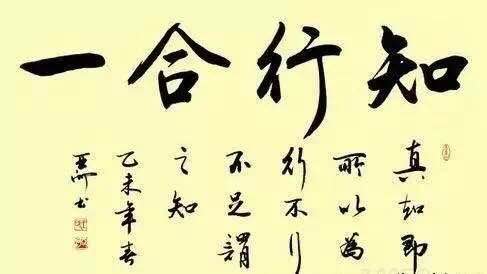 知行合一
真知即
所以為
行不行
不足謂
之知
乙未年春
亞洲书